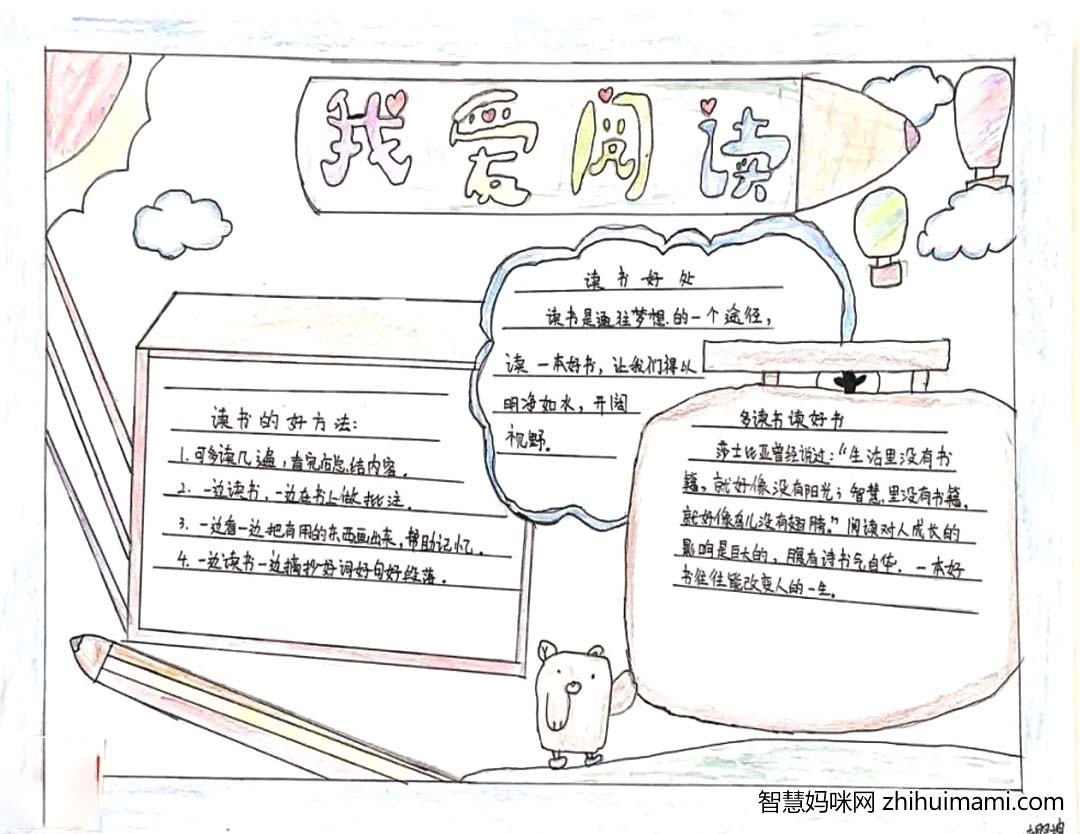 我爱阅读
读书好处
读书是通往梦想的一个途径，
读一本好书，让我们得以
明净如水，开阔
视野。
读书的好方法：
1.可多读几遍，看完后总结内容。
2. 一边读书，一边在书上做批注。
3. 一边看一边把有用的东西画出来，帮助记忆。
4. 一边读书一边摘抄好词好句好段落。
多读书读好书
莎士比亚曾经说过：“生活里没有书
籍，就好像没有阳光；智慧里没有书籍，
就好像鸟儿没有翅膀。”阅读对人成长的
影响是巨大的，腹有诗书气自华．一本好
书往往能改变人的一生。
智慧妈咪网 zhihuimami.com